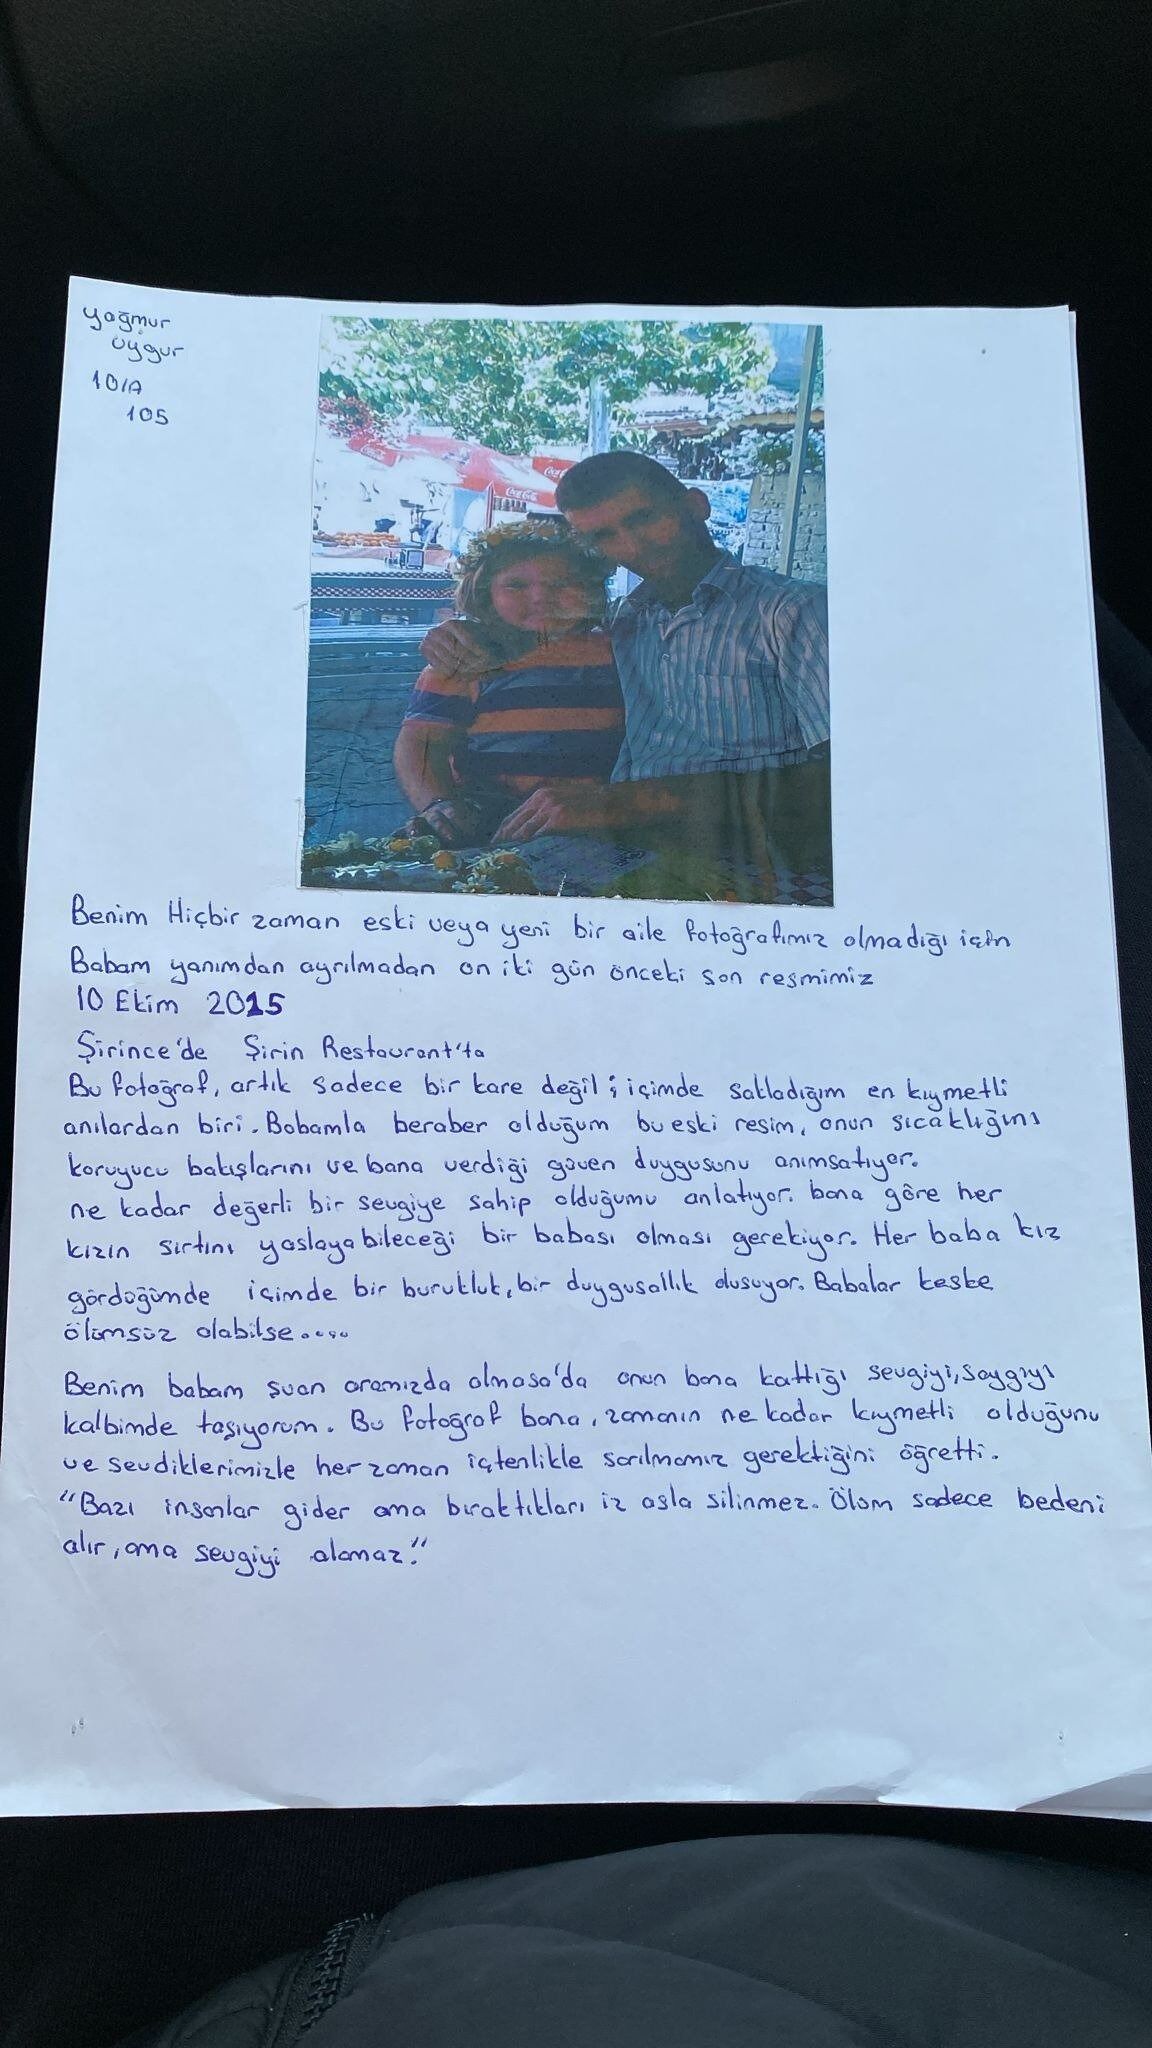 Yağmur
Uygur
10/A
105
Coca-Cola
Coca-Cola
Benim Hiçbir zaman eski veya yeni bir aile fotoğrafımız olmadığı için
Babam yanımdan ayrılmadan on iki gün önceki son resmimiz
10 Ekim 2015
Şirince'de Şirin Restaurant'ta
Bu fotoğraf, artık sadece bir kare değil; içimde sakladığım en kıymetli
anılardan biri. Babamla beraber olduğum bu eski resim, onun sıcaklığını
koruyucu bakışlarını ve bana verdiği güven duygusunu anımsatıyor.
ne kadar değerli bir sevgiye sahip olduğumu anlatıyor. bana göre her
kızın sırtını yaslayabileceği bir babası olması gerekiyor. Her baba kız
gördüğümde içimde bir burukluk, bir duygusallık oluşuyor. Babalar keşke
ölümsüz olabilse....
Benim babam şuan aramızda olmasa'da onun bana kattığı sevgiyi, saygıyı
kalbimde taşıyorum. Bu fotoğraf bana, zamanın ne kadar kıymetli olduğunu
ve sevdiklerimizle her zaman içtenlikle sarılmamız gerektiğini öğretti.
"Bazı insanlar gider ama bıraktıkları iz asla silinmez. Ölüm sadece bedeni
alır, ama sevgiyi alamaz."